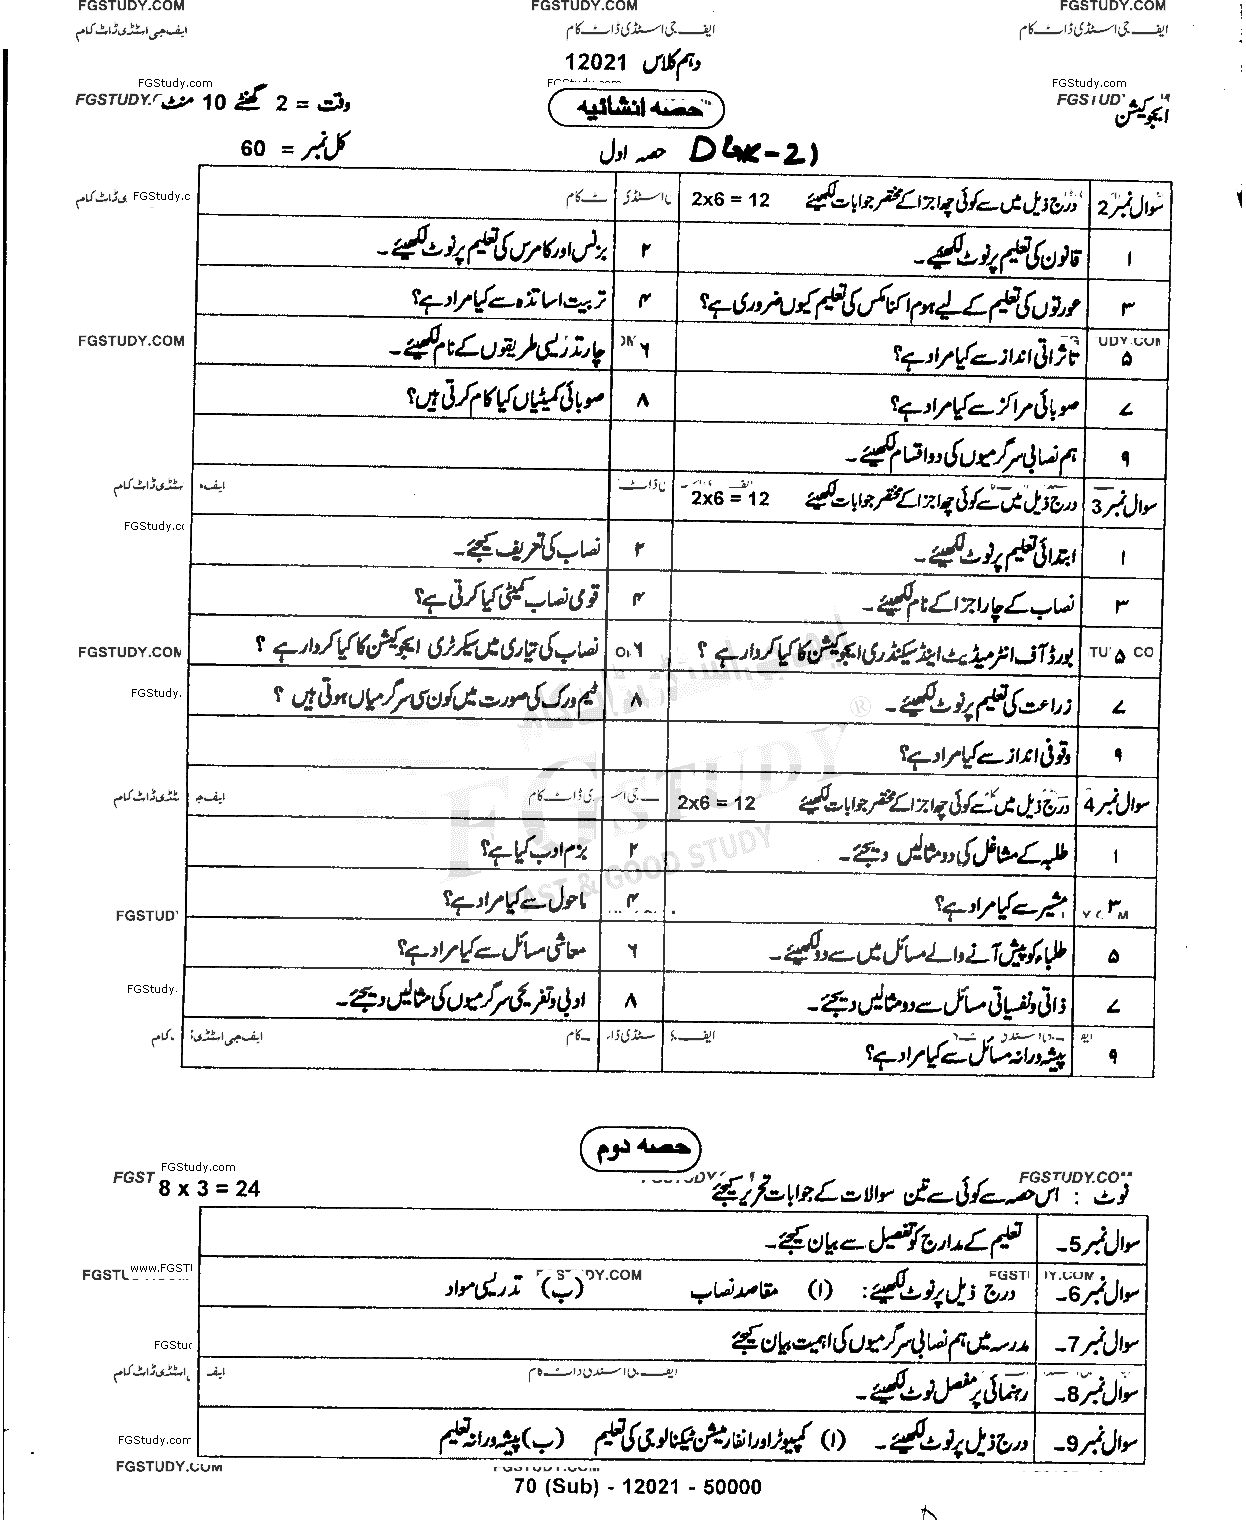 FGSTUDY.COM FGSTUDY.COM FGSTUDY.COM
ایف جی اسٹڈی ڈاٹ کام ایف جی اسٹڈی ڈاٹ کام ایف جی اسٹڈی ڈاٹ کام
دہم کلاس 12021
FGStudy.com FGStudy.com
ایجوکیشن حصہ انشائیہ وقت = 2 گھنٹے 10 منٹ
حصہ اول DGK-21 کل نمبر = 60
سوال نمبر 2 درج ذیل میں سے کوئی چھ اجزا کے مختصر جوابات لکھیئے 2x6 = 12
۱ قانون کی تعلیم پر نوٹ لکھیئے۔ ۲ بزنس اور کامرس کی تعلیم پر نوٹ لکھیئے۔
۳ عورتوں کی تعلیم کے لیے ہوم اکنامکس کی تعلیم کیوں ضروری ہے؟ ۴ تربیت اساتذہ سے کیا مراد ہے؟
FGSTUDY.COM
۵ تاثراتی انداز سے کیا مراد ہے؟ ۶ چار تدریسی طریقوں کے نام لکھیئے۔
۷ صوبائی مراکز سے کیا مراد ہے؟ ۸ صوبائی کمیٹیاں کیا کام کرتی ہیں؟
۹ ہم نصابی سرگرمیوں کی دو اقسام لکھیئے۔
سوال نمبر 3 درج ذیل میں سے کوئی چھ اجزا کے مختصر جوابات لکھیئے 2x6 = 12
۱ ابتدائی تعلیم پر نوٹ لکھیئے۔ ۲ نصاب کی تعریف کیجئے۔
۳ نصاب کے چار اجزا کے نام لکھیئے۔ ۴ قومی نصاب کمیٹی کیا کرتی ہے؟
۵ بورڈ آف انٹرمیڈیٹ اینڈ سیکنڈری ایجوکیشن کا کیا کردار ہے ؟ ۶ نصاب کی تیاری میں سیکرٹری ایجوکیشن کا کیا کردار ہے ؟
FGSTUDY.COM
۷ زراعت کی تعلیم پر نوٹ لکھیئے۔ ۸ ٹیم ورک کی صورت میں کون سی سرگرمیاں ہوتی ہیں ؟
۹ وقوفی انداز سے کیا مراد ہے؟
FGSTUDY ®
FAST & GOOD STUDY
سوال نمبر 4 درج ذیل میں سے کوئی چھ اجزا کے مختصر جوابات لکھیئے 2x6 = 12
۱ طلبہ کے مشاغل کی دو مثالیں دیجئے۔ ۲ بزم ادب کیا ہے؟
۳ مشیر سے کیا مراد ہے؟ ۴ ماحول سے کیا مراد ہے؟
۵ طلباء کو پیش آنے والے مسائل میں سے دو لکھیئے۔ ۶ معاشی مسائل سے کیا مراد ہے؟
۷ ذاتی و نفسیاتی مسائل سے دو مثالیں دیجئے۔ ۸ ادبی و تفریحی سرگرمیوں کی مثالیں دیجئے۔
۹ پیشہ ورانہ مسائل سے کیا مراد ہے؟
حصہ دوم
FGStudy.com
نوٹ : اس حصہ سے کوئی سے تین سوالات کے جوابات تحریر کیجئے 8 x 3 = 24
سوال نمبر 5۔ تعلیم کے مدارج کو تفصیل سے بیان کیجئے۔
سوال نمبر 6۔ درج ذیل پر نوٹ لکھیئے: (ا) مقاصد نصاب (ب) تدریسی مواد
سوال نمبر 7۔ مدرسہ میں ہم نصابی سرگرمیوں کی اہمیت بیان کیجئے
سوال نمبر 8۔ رہنمائی پر مفصل نوٹ لکھیئے۔
سوال نمبر 9۔ درج ذیل پر نوٹ لکھیئے۔ (ا) کمپیوٹر اور انفارمیشن ٹیکنالوجی کی تعلیم (ب) پیشہ ورانہ تعلیم
FGStudy.com
FGSTUDY.COM
70 (Sub) - 12021 - 50000